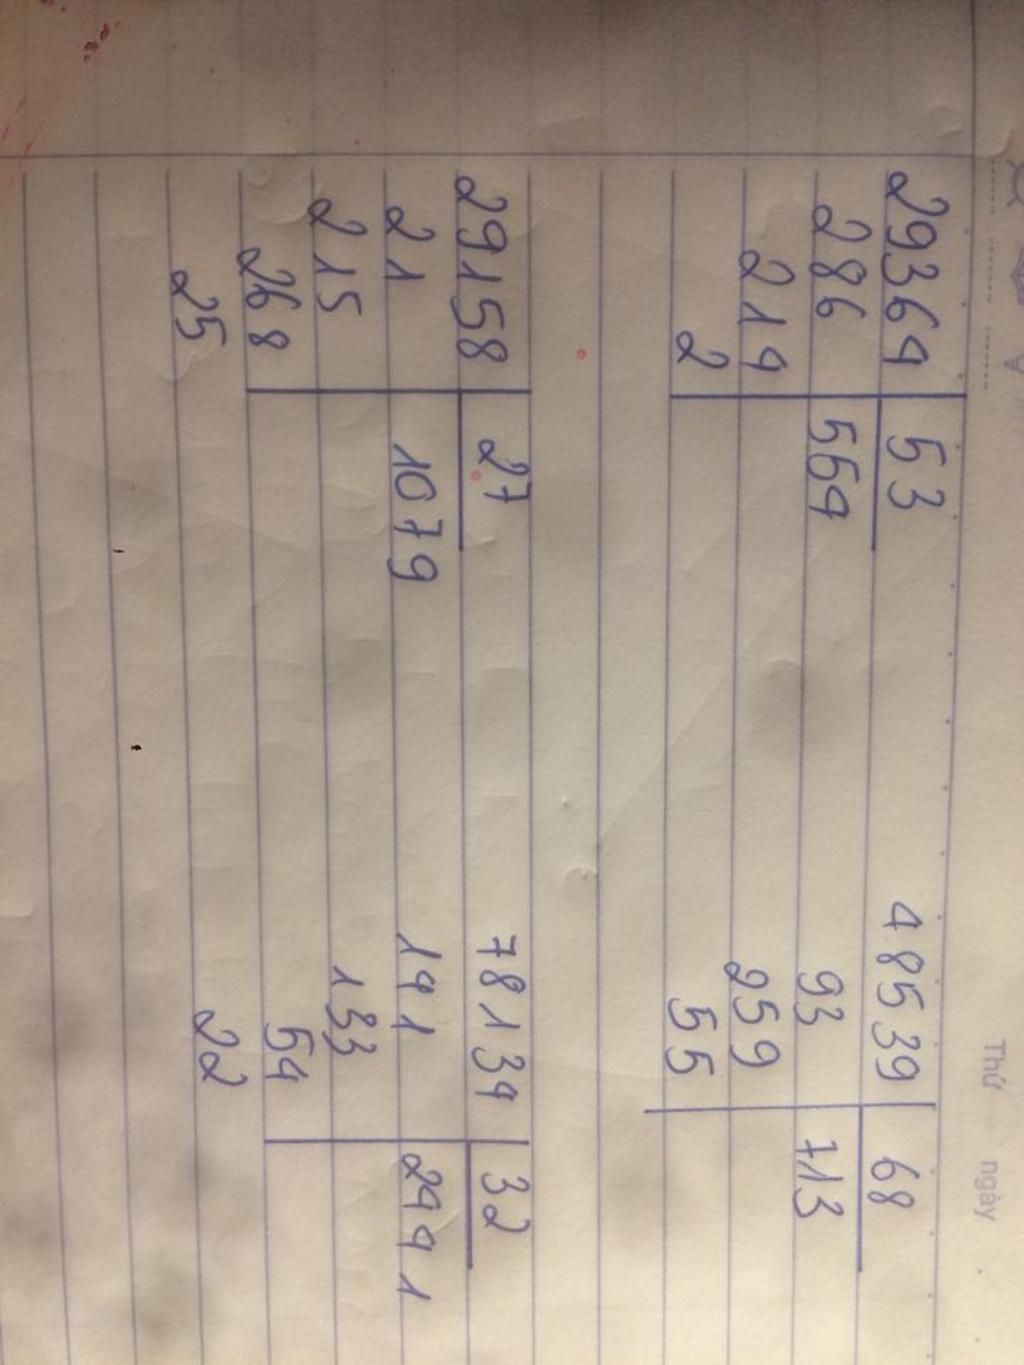 Thứ ngày
29364 53 48539 68
286 554 93 713
214 259
2 55
29158 27 78134 32
21 1079 141 2441
215 133
268 54
25 22